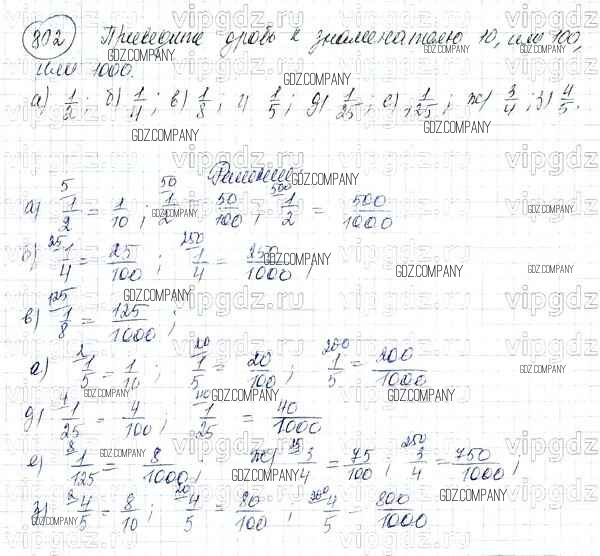 802 Приведите дробь к знаменателю 10, или 100,
или 1000.
а) 1/2; б) 1/4; в) 1/8; г) 1/5; д) 1/25; е) 1/125; ж) 3/4; з) 4/5.
Решение
а) 5 1/2 = 1/10; 50 1/2 = 50/100; 500 1/2 = 500/1000
б) 25 1/4 = 25/100; 250 1/4 = 250/1000;
в) 125 1/8 = 125/1000;
г) 2 1/5 = 1/10; 20 1/5 = 20/100; 200 1/5 = 200/1000
д) 4 1/25 = 4/100; 40 1/25 = 40/1000
е) 8 1/125 = 8/1000; ж) 25 3/4 = 75/100; 250 3/4 = 750/1000;
з) 2 4/5 = 8/10; 20 4/5 = 80/100; 200 4/5 = 800/1000
GDZ.COMPANY
vipgdz.ru